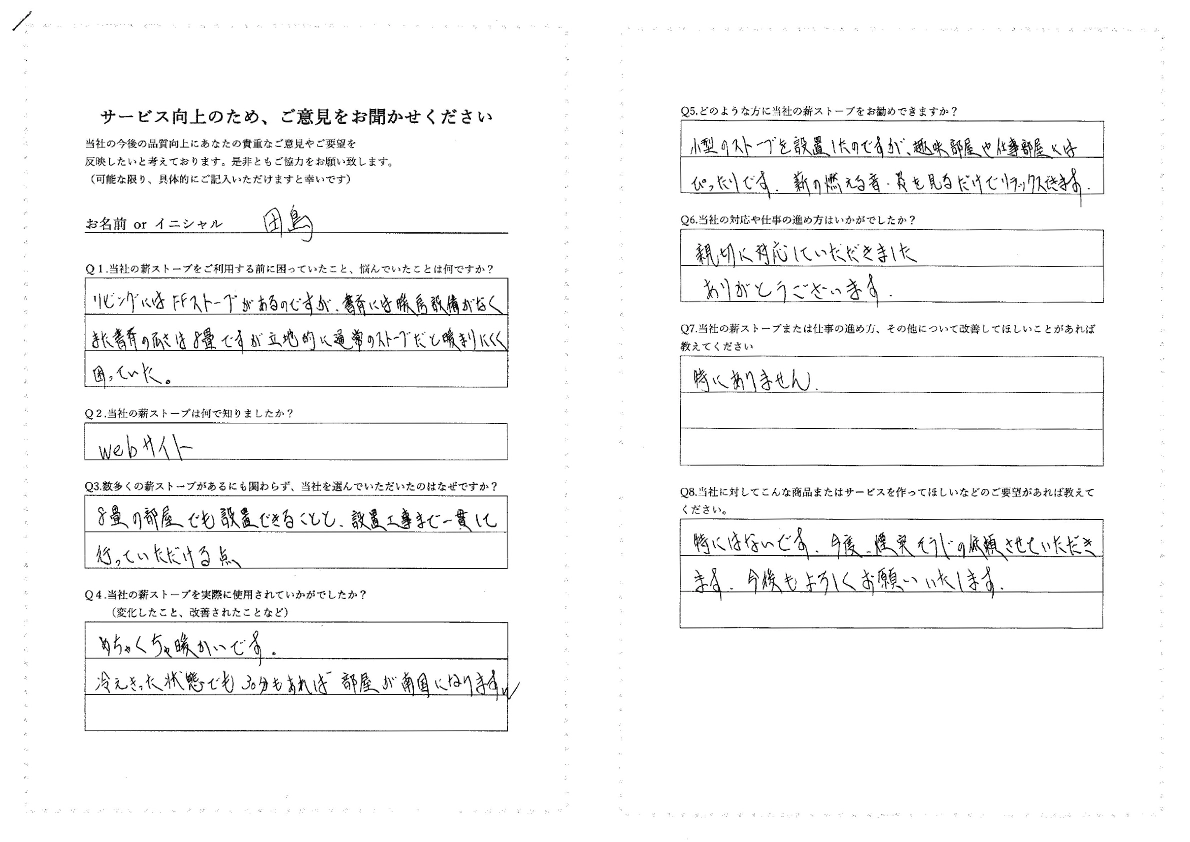 サービス向上のため、ご意見をお聞かせください
当社の今後の品質向上にあなたの貴重なご意見やご要望を
反映したいと考えております。是非ともご協力をお願い致します。
（可能な限り、具体的にご記入いただけますと幸いです）
お名前 or イニシャル 田島
Q１.当社の薪ストーブをご利用する前に困っていたこと、悩んでいたことは何ですか？
リビングにはFFストーブがあるのですが、書斎には暖房設備がなく
また書斎の広さは8畳ですが立地的に通常のストーブだと暖まりにくく
困っていた。
Q２.当社の薪ストーブは何で知りましたか？
webサイト
Q3.数多くの薪ストーブがあるにも関わらず、当社を選んでいただいたのはなぜですか？
8畳の部屋でも設置できることと、設置工事まで一貫して
行っていただける点
Q４.当社の薪ストーブを実際に使用されていかがでしたか？
（変化したこと、改善されたことなど）
めちゃくちゃ暖かいです。
冷えきった状態でも30分もあれば 部屋が南国になりますw
Q5.どのような方に当社の薪ストーブをお勧めできますか？
小型のストーブを設置したのですが、趣味部屋や仕事部屋には
ぴったりです。薪の燃える音・炎を見るだけでリラックスできます。
Q6.当社の対応や仕事の進め方はいかがでしたか？
親切に対応していただきました
ありがとうございます。
Q7.当社の薪ストーブまたは仕事の進め方、その他について改善してほしいことがあれば
教えてください
特にありません。
Q8.当社に対してこんな商品またはサービスを作ってほしいなどのご要望があれば教えて
ください。
特にはないです。今度、煙突そうじの依頼させていただき
ます。今後もよろしくお願いいたします。